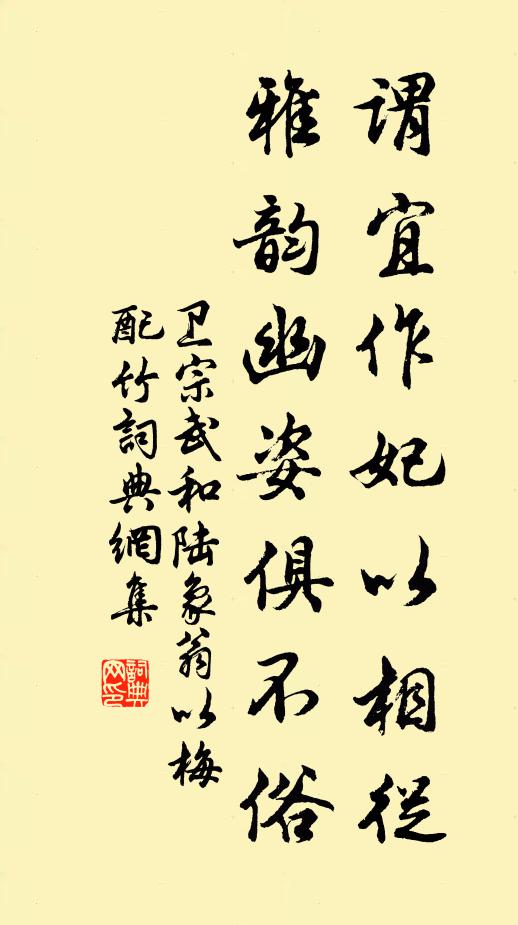 謂宜作妃以相從
雅韵幽姿俱不俗
卫宗武和陆象翁以梅
配竹詞典網集
詞典网印